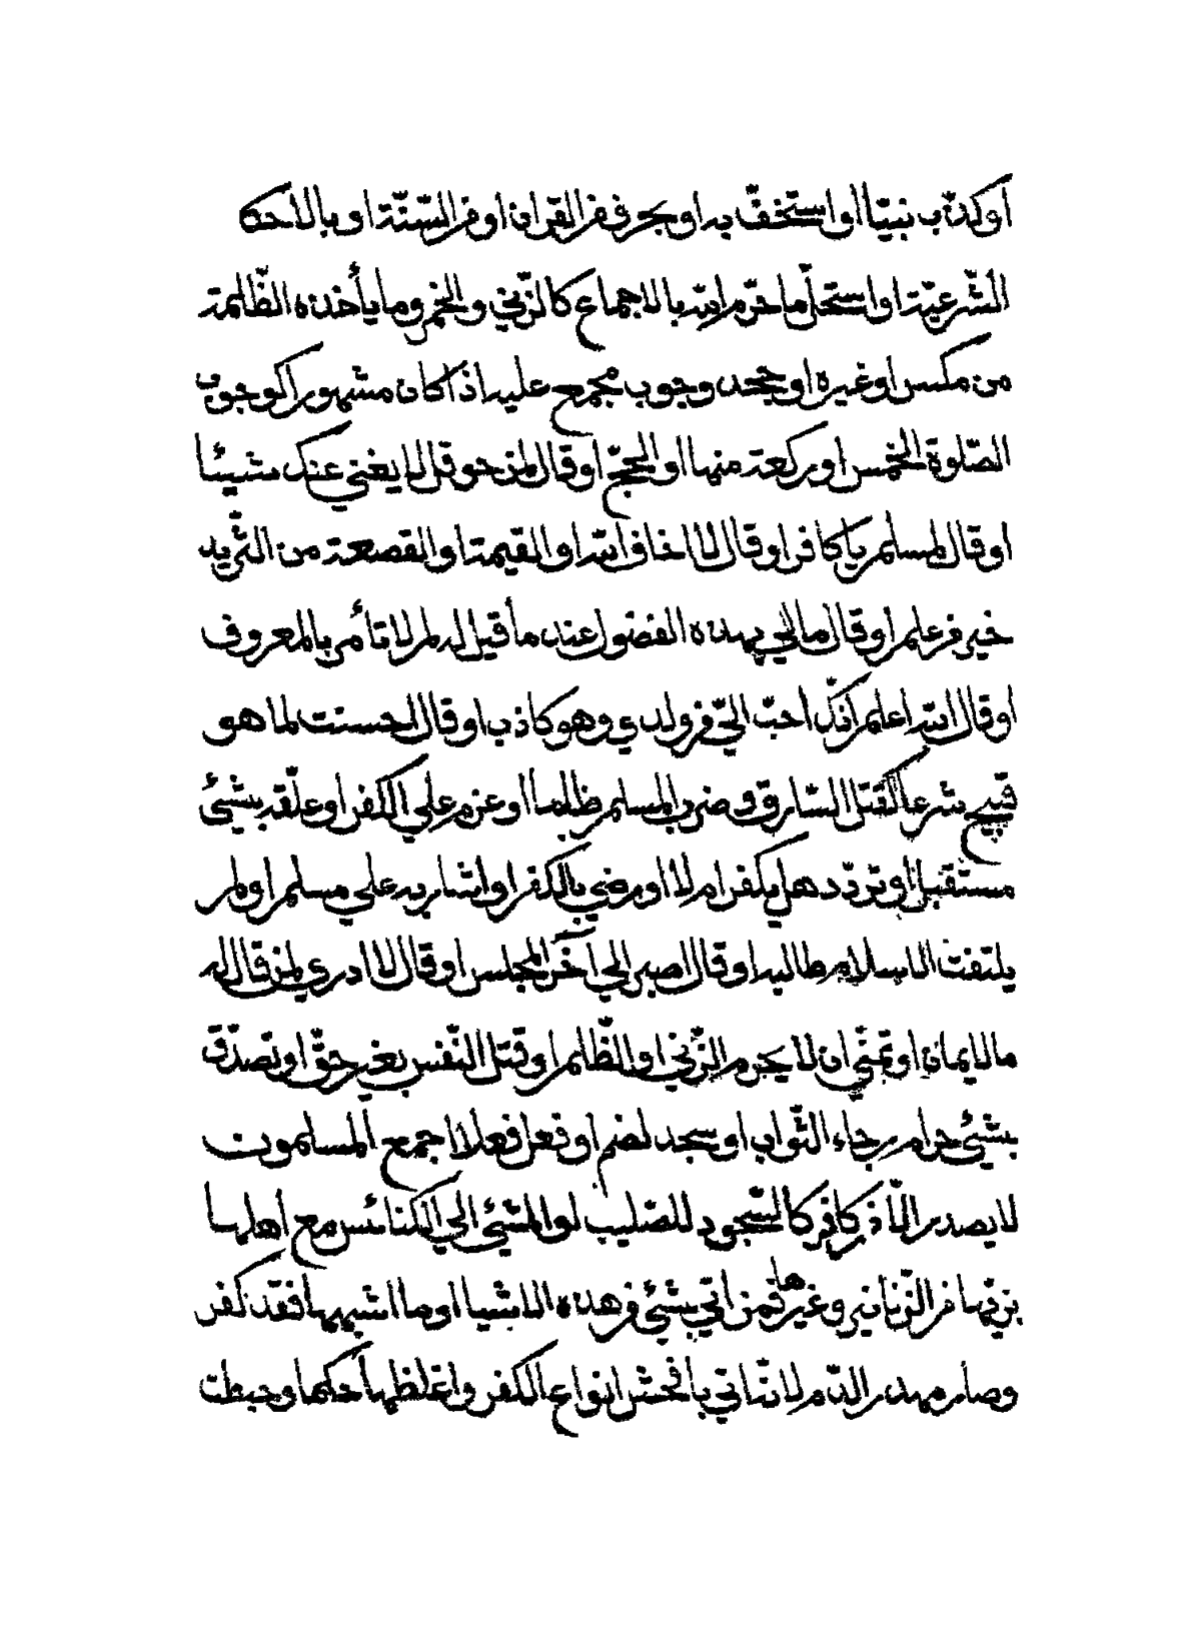 اوكذّب نبيّا او استخفّ به او بحرف من القران او من السّنّة او بالاحكا
الشّرعيّة او استحلّ ما حرّم الله بالاجماع كالزّني والخمر وما يأخذه الظّالمة
من مكس او غيره او جحد وجوب مجمع عليه اذا كان مشهورا كوجوب
الصّلوة الخمس او ركعة منها او الحجّ او قال لمن حوقل لا يغني عنك شيئا
او قال لمسلم يا كافر او قال لا اخاف الله او القيمة او القصعة من الثّريد
خير من علم او قال مالي بهذه الفضول عند ما قيل له لم لا تأمر بالمعروف
او قال الله اعلم انّك احبّ اليّ من ولدي وهو كاذب او قال احسنت لما هو
قبيح شرعا كقتل السّارق وضرب المسلم ظلما او عزم علي الكفر او علّقه بشيئ
مستقبل او تردّد هل يكفر ام لا او رضي بالكفر او اشار به علي مسلم او لم
يلتفت الاسلام طالبه او قال اصبر الي آخر المجلس او قال لا ادري لمن قال له
ما الايمان او تمنّي ان لا يحرم الزّني او الظّلم او قتل النّفس بغير حقّ او تصدّق
بشيئ حرام رجاء الثّواب او سجد لصنم او فعل فعلا اجمع المسلمون
لا يصدر الّا من كافر كالسّجود للصّليب او المشيئ الي الكنائس مع اهلها
بزيّها من الزّنانير وغيرها فمن اتي بشيئ من هذه الاشيا او ما اشبهها فقد كفر
وصار مهدر الدّم لانّه اتي بأفحش انواع الكفر واغلظها حكما وحبطت